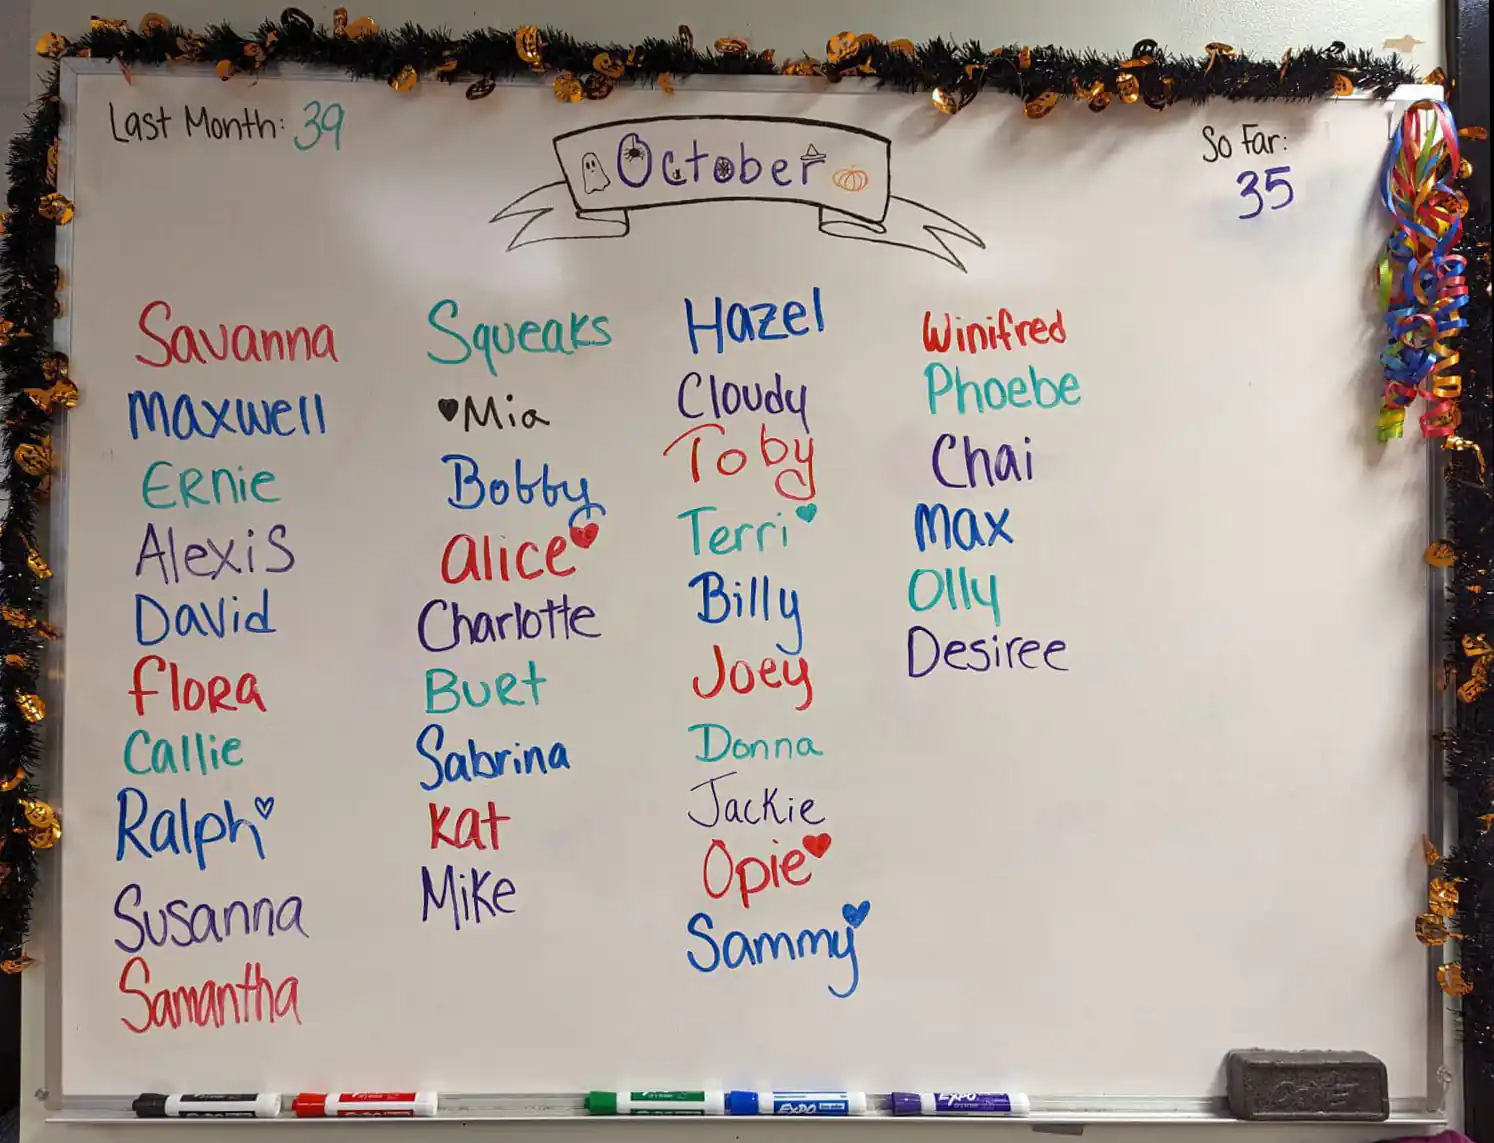 Last Month: 39
October
So Far:
35
Savanna
Maxwell
Ernie
Alexis
David
Flora
Callie
Ralph
Susanna
Samantha
Squeaks
Mia
Bobby
Alice
Charlotte
Burt
Sabrina
Kat
Mike
Hazel
Cloudy
Toby
Terri
Billy
Joey
Donna
Jackie
Opie
Sammy
Winifred
Phoebe
Chai
Max
Olly
Desiree
EXPO
EXPO